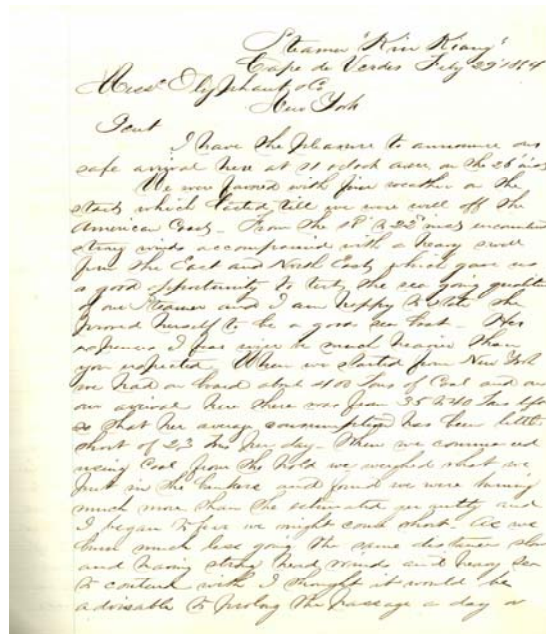 Steamer "Kin Kiang"
Cape de Verdes Feby 29' 1864
Mess Olyphant & Co
New York
Gent
I have the pleasure to announce our
safe arrival here at 11 oclock on the 26' inst
We were favored with fine weather on the
start which lasted till we were well off the
American Coast. From the 18' to 22' inst encountered
strong winds accompanied with a heavy swell
from the East and North East, which gave us
a good opportunity to test the sea going qualit
of our Steamer and I am happy to state she
proved herself to be a good sea boat. Her
expenses I fear will be much heavier than
you expected. When we started from New York
we had on board about 400 Tons of Coal and on
our arrival here there was from 35 to 40 Tons left
so that her average consumption has been little
short of 23 tons per day. When we commenced
using Coal from the hold we weighed what we
put in the bunkers and found we were burning
much more than the estimated quantity and
I began to fear we might come short. As we
burn much less going the same distance slow
and having strong head winds and heavy sea
to contend with I thought it would be
advisable to prolong the passage a day or